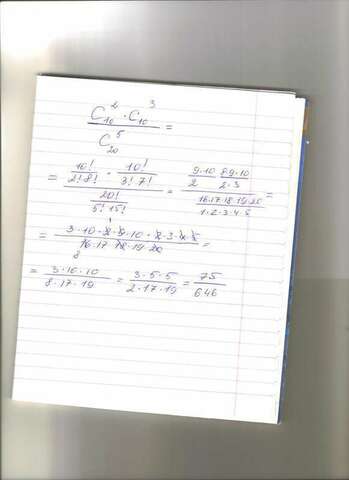 C₁₀² · C₁₀³ / C₂₀⁵ =
= (10! / 2!8! · 10! / 3!7!) / (20! / 5!15!) = (9·10 / 2 · 8·9·10 / 2·3) / (16·17·18·19·20 / 1·2·3·4·5) =
= 10 · 3 · 4 · 5 / 16·17·18·19·20 =
= 3·10·10 / 8·17·19 = 3·5·5 / 2·17·19 = 75 / 646